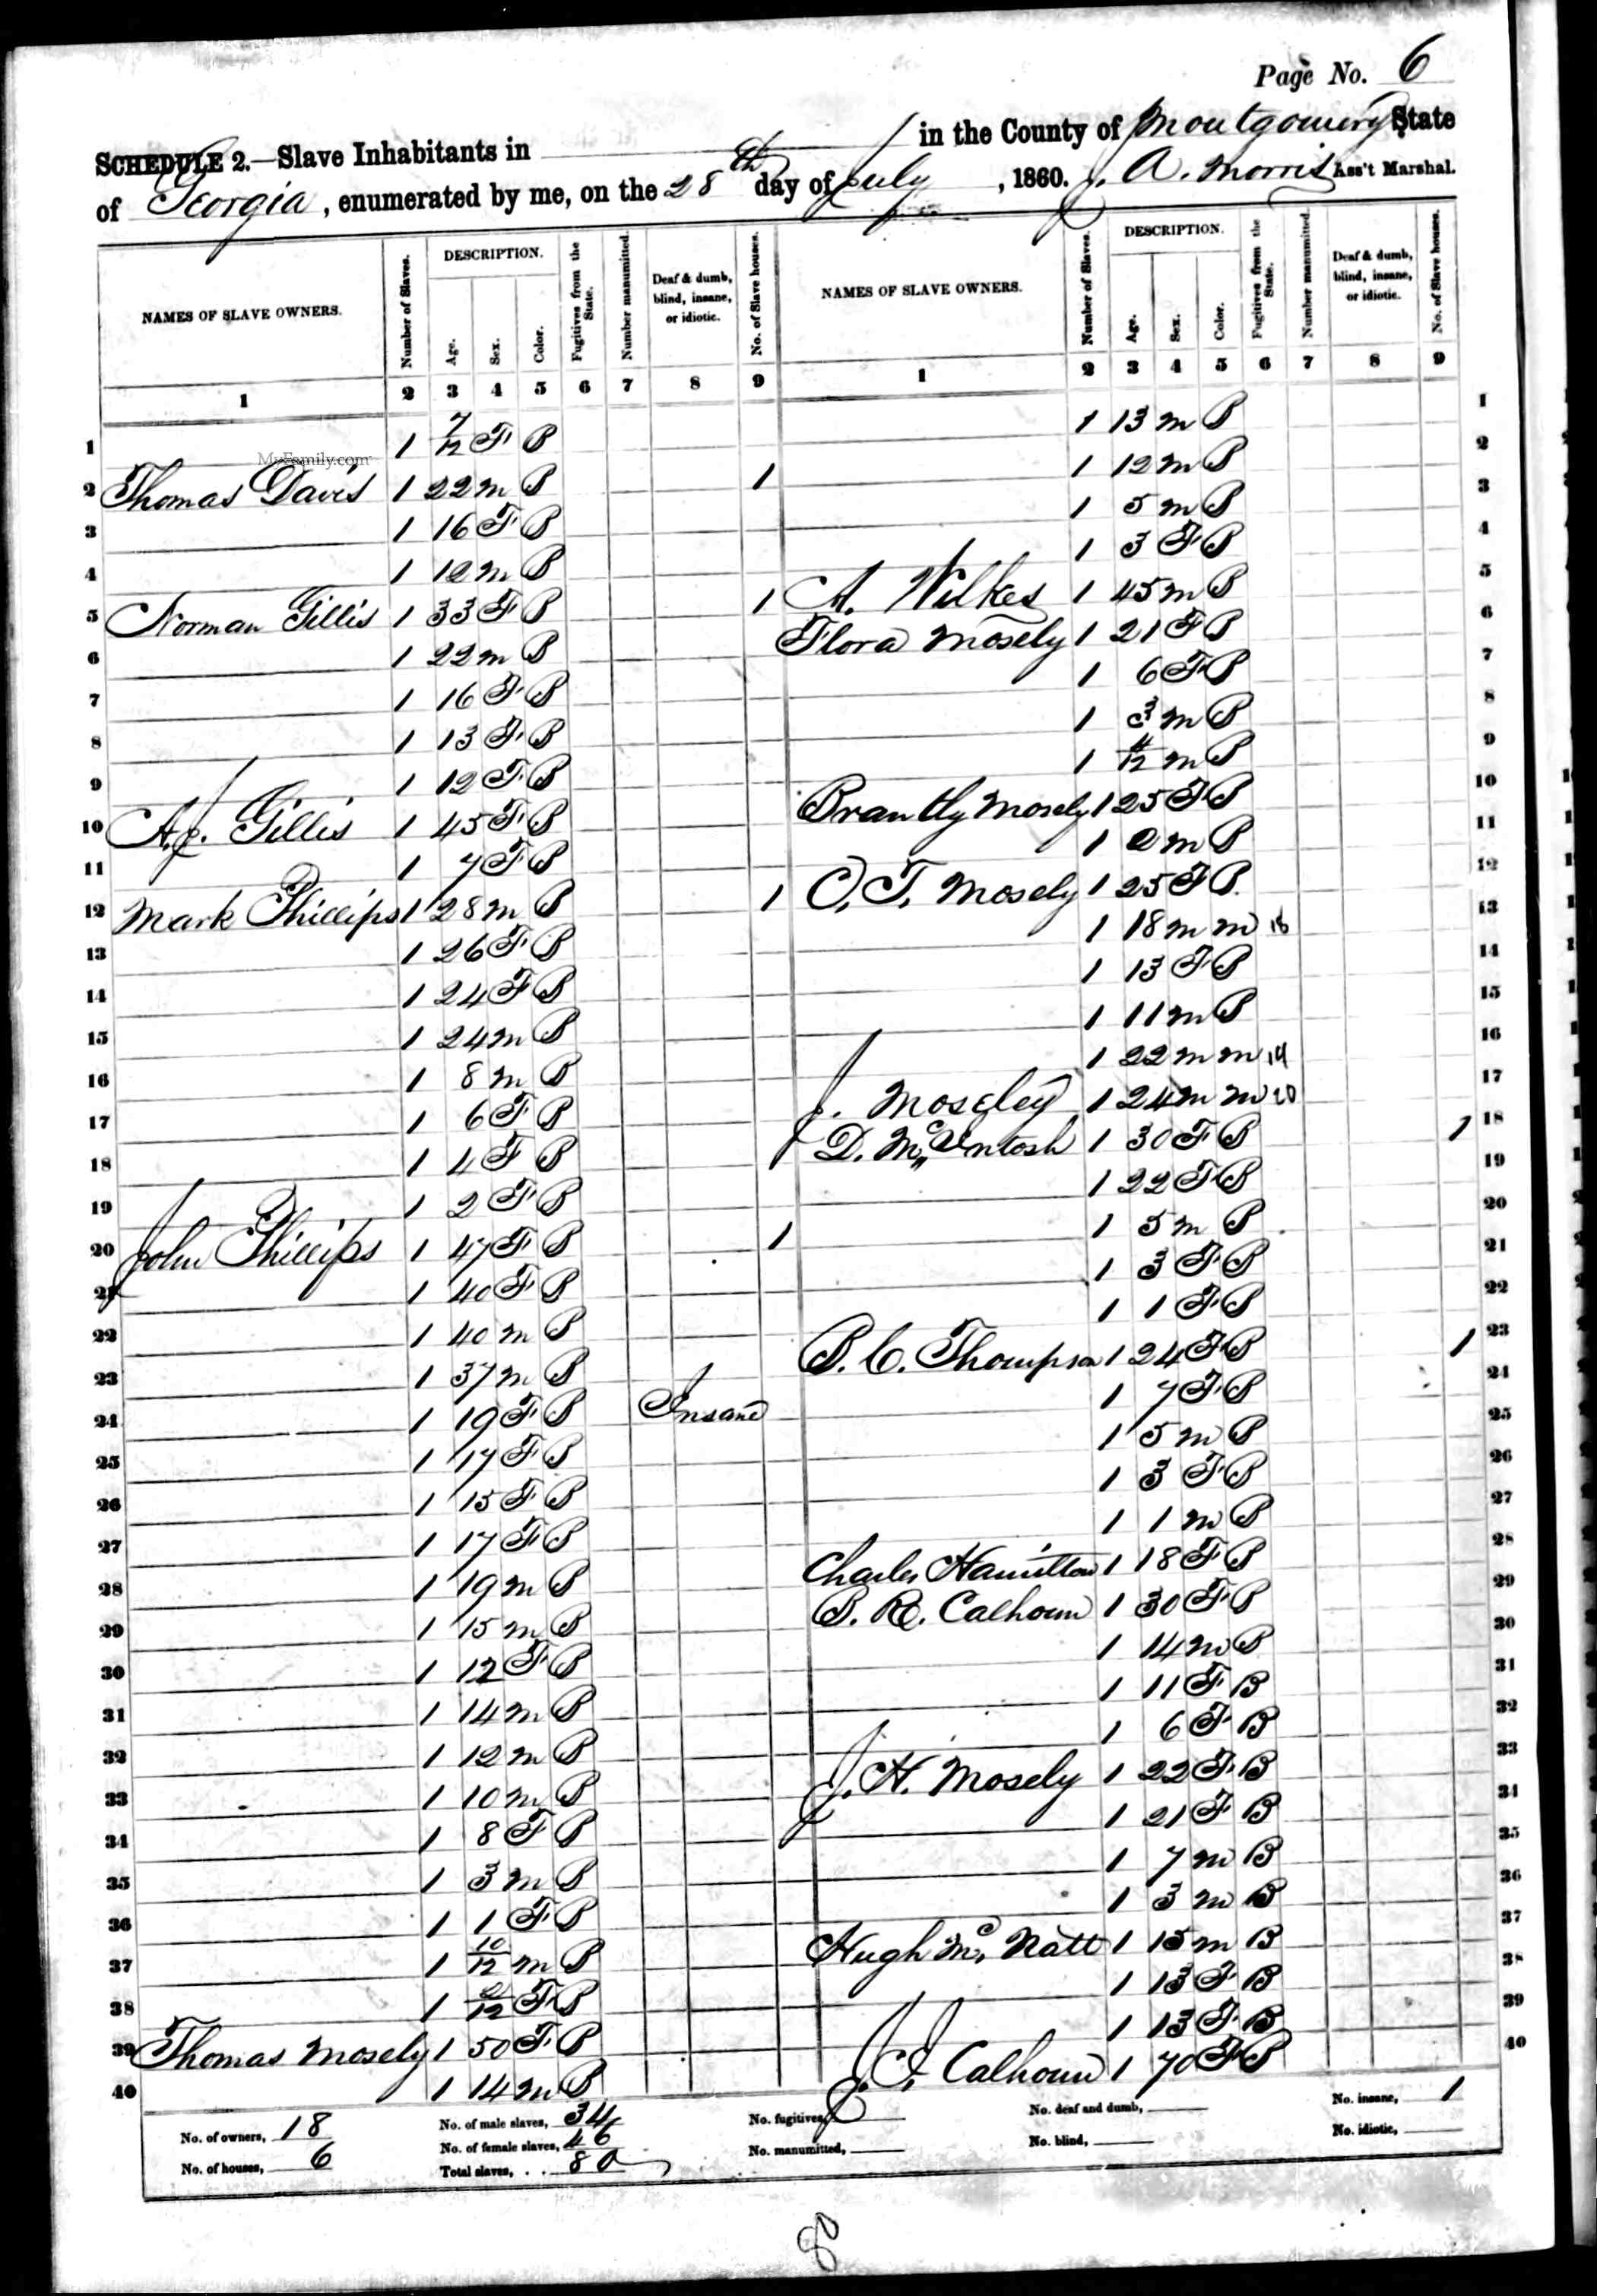 Page No. 6
SCHEDULE 2.—Slave Inhabitants in in the County of Montgomery State
of Georgia, enumerated by me, on the 28th day of July, 1860. J. A. Morris Ass't Marshal.
NAMES OF SLAVE OWNERS. Number of Slaves. DESCRIPTION. Age. Sex. Color. Fugitives from the State. Number manumitted. Deaf & dumb, blind, insane, or idiotic. No. of Slave houses.
NAMES OF SLAVE OWNERS. Number of Slaves. DESCRIPTION. Age. Sex. Color. Fugitives from the State. Number manumitted. Deaf & dumb, blind, insane, or idiotic. No. of Slave houses.
1 2 3 4 5 6 7 8 9 1 2 3 4 5 6 7 8 9
MyFamily.com
1 1 7/12 F B
2 Thomas Davis 1 22 m B 1
3 1 16 F B
4 1 12 m B
5 Norman Gillis 1 33 F B 1
6 1 22 m B
7 1 16 F B
8 1 13 F B
9 1 12 F B
10 A. J. Gillis 1 45 F B
11 1 7 F B
12 Mark Phillips 1 28 m B 1
13 1 26 F B
14 1 24 F B
15 1 24 m B
16 1 8 m B
17 1 6 F B
18 1 4 F B
19 1 2 F B
20 John Phillips 1 47 F B 1
21 1 40 F B
22 1 40 m B
23 1 37 m B
24 1 19 F B Insane
25 1 17 F B
26 1 15 F B
27 1 17 F B
28 1 19 m B
29 1 15 m B
30 1 12 F B
31 1 14 m B
32 1 12 m B
33 1 10 m B
34 1 8 F B
35 1 3 m B
36 1 1 F B
37 1 10/12 m B
38 1 2/12 F B
39 Thomas Mosely 1 50 F B
40 1 14 m B
1 13 m B 1
1 12 m B 2
1 5 m B 3
1 3 F B 4
A. Wilkes 1 45 m B 5
Flora Mosely 1 21 F B 6
1 6 F B 7
1 3 m B 8
1 /12 m B 9
Brantly Mosely 1 25 F B 10
1 2 m B 11
C. T. Mosely 1 25 F B 12
1 18 m m 13
1 13 F B 14
1 11 m B 15
1 22 m m 16
J. Moseley 1 24 m m 17
D. McIntosh 1 30 F B 1 18
1 22 F B 19
1 5 m B 20
1 3 F B 21
1 1 F B 22
B. C. Thompson 1 24 F B 1 23
1 7 F B 24
1 5 m B 25
1 3 F B 26
1 1 m B 27
Charles Hamilton 1 18 F B 28
B. R. Calhoun 1 30 F B 29
1 14 m B 30
1 11 F B 31
1 6 F B 32
J. H. Mosely 1 22 F B 33
1 21 F B 34
1 7 m B 35
1 3 m B 36
Hugh Mc Natt 1 15 m B 37
1 13 F B 38
1 13 F B 39
Calhoun 1 70 F B 40
No. of owners, 18 No. of male slaves, 34 No. fugitives, No. deaf and dumb, No. insane, 1
No. of houses, 6 No. of female slaves, 46 No. manumitted, No. blind, No. idiotic,
Total slaves, . . 80